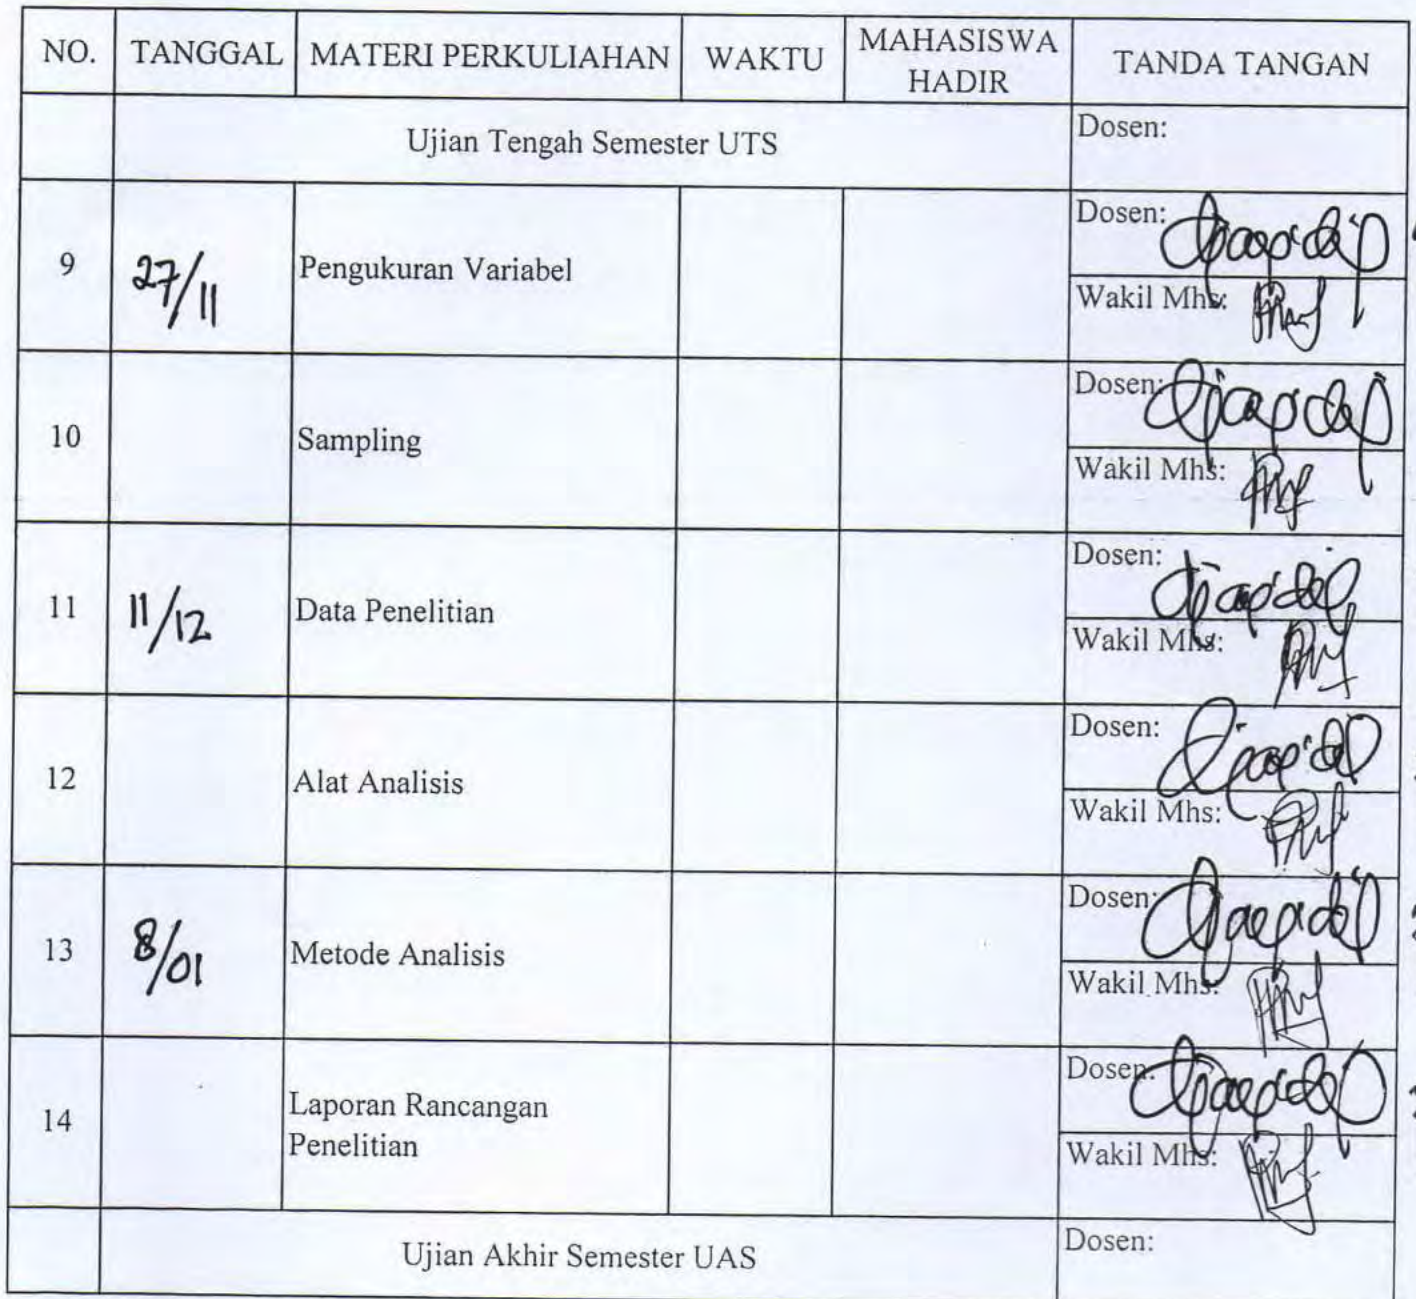 NO. TANGGAL MATERI PERKULIAHAN WAKTU MAHASISWA HADIR TANDA TANGAN
Ujian Tengah Semester UTS Dosen:
9 27/11 Pengukuran Variabel Dosen:
Wakil Mhs:
10 Sampling Dosen:
Wakil Mhs:
11 11/12 Data Penelitian Dosen:
Wakil Mhs:
12 Alat Analisis Dosen:
Wakil Mhs:
13 8/01 Metode Analisis Dosen:
Wakil Mhs:
14 Laporan Rancangan Dosen:
Penelitian Wakil Mhs:
Ujian Akhir Semester UAS Dosen: